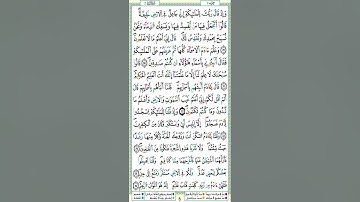 وَإِذْ قَالَ رَبُّكَ لِلْمَلَٰٓئِكَةِ إِنِّي جَاعِلٌ فِي ٱلْأَرْضِ خَلِيفَةً
قَالُوٓاْ أَتَجْعَلُ فِيهَا مَن يُفْسِدُ فِيهَا وَيَسْفِكُ ٱلدِّمَآءَ وَنَحْنُ
نُسَبِّحُ بِحَمْدِكَ وَنُقَدِّسُ لَكَ قَالَ إِنِّيٓ أَعْلَمُ مَا لَا تَعْلَمُونَ
وَعَلَّمَ ءَادَمَ ٱلْأَسْمَآءَ كُلَّهَا ثُمَّ عَرَضَهُمْ عَلَى ٱلْمَلَٰٓئِكَةِ
فَقَالَ أَنۢبِـُٔونِي بِأَسْمَآءِ هَٰٓؤُلَآءِ إِن كُنتُمْ صَٰدِقِينَ قَالُواْ
سُبْحَٰنَكَ لَا عِلْمَ لَنَآ إِلَّا مَا عَلَّمْتَنَآ إِنَّكَ أَنتَ ٱلْعَلِيمُ ٱلْحَكِيمُ
قَالَ يَٰٓـَٔادَمُ أَنۢبِئْهُم بِأَسْمَآئِهِمْ فَلَمَّآ أَنۢبَأَهُم بِأَسْمَآئِهِمْ قَالَ
أَلَمْ أَقُل لَّكُمْ إِنِّيٓ أَعْلَمُ غَيْبَ ٱلسَّمَٰوَٰتِ وَٱلْأَرْضِ وَأَعْلَمُ مَا
تُبْدُونَ وَمَا كُنتُمْ تَكْتُمُونَ وَإِذْ قُلْنَا لِلْمَلَٰٓئِكَةِ ٱسْجُدُواْ
لِـَٔادَمَ فَسَجَدُوٓاْ إِلَّآ إِبْلِيسَ أَبَىٰ وَٱسْتَكْبَرَ وَكَانَ مِنَ ٱلْكَٰفِرِينَ
وَقُلْنَا يَٰٓـَٔادَمُ ٱسْكُنْ أَنتَ وَزَوْجُكَ ٱلْجَنَّةَ وَكُلَا مِنْهَا رَغَدًا
حَيْثُ شِئْتُمَا وَلَا تَقْرَبَا هَٰذِهِ ٱلشَّجَرَةَ فَتَكُونَا مِنَ ٱلظَّٰلِمِينَ
فَأَزَلَّهُمَا ٱلشَّيْطَٰنُ عَنْهَا فَأَخْرَجَهُمَا مِمَّا كَانَا فِيهِ وَقُلْنَا ٱهْبِطُواْ
بَعْضُكُمْ لِبَعْضٍ عَدُوٌّ وَلَكُمْ فِي ٱلْأَرْضِ مُسْتَقَرٌّ وَمَتَٰعٌ إِلَىٰ حِينٍ
فَتَلَقَّىٰٓ ءَادَمُ مِن رَّبِّهِۦ كَلِمَٰتٍ فَتَابَ عَلَيْهِ إِنَّهُۥ هُوَ ٱلتَّوَّابُ ٱلرَّحِيمُ